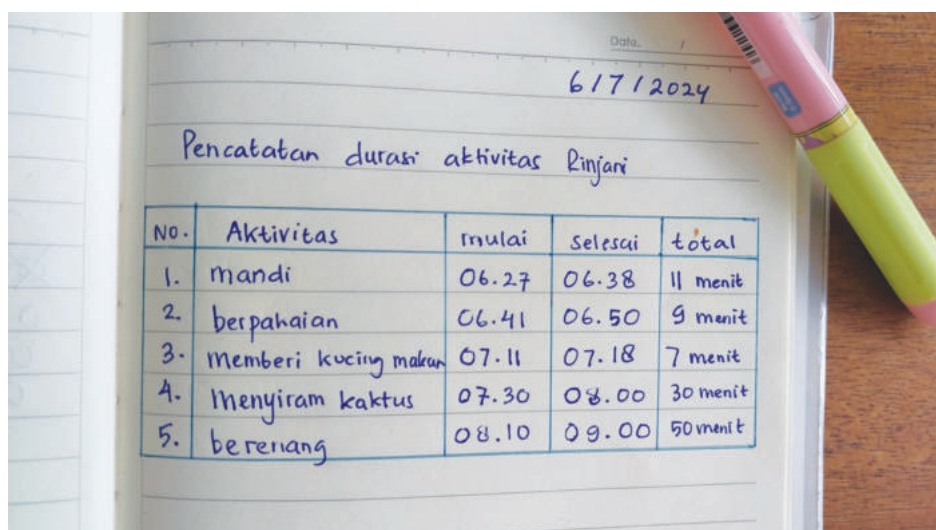 Date. /
6/7/2024
Pencatatan durasi aktivitas Rinjani
No. Aktivitas mulai selesai total
1. mandi 06.27 06.38 11 menit
2. berpakaian 06.41 06.50 9 menit
3. memberi kucing makan 07.11 07.18 7 menit
4. menyiram kaktus 07.30 08.00 30 menit
5. berenang 08.10 09.00 50 menit